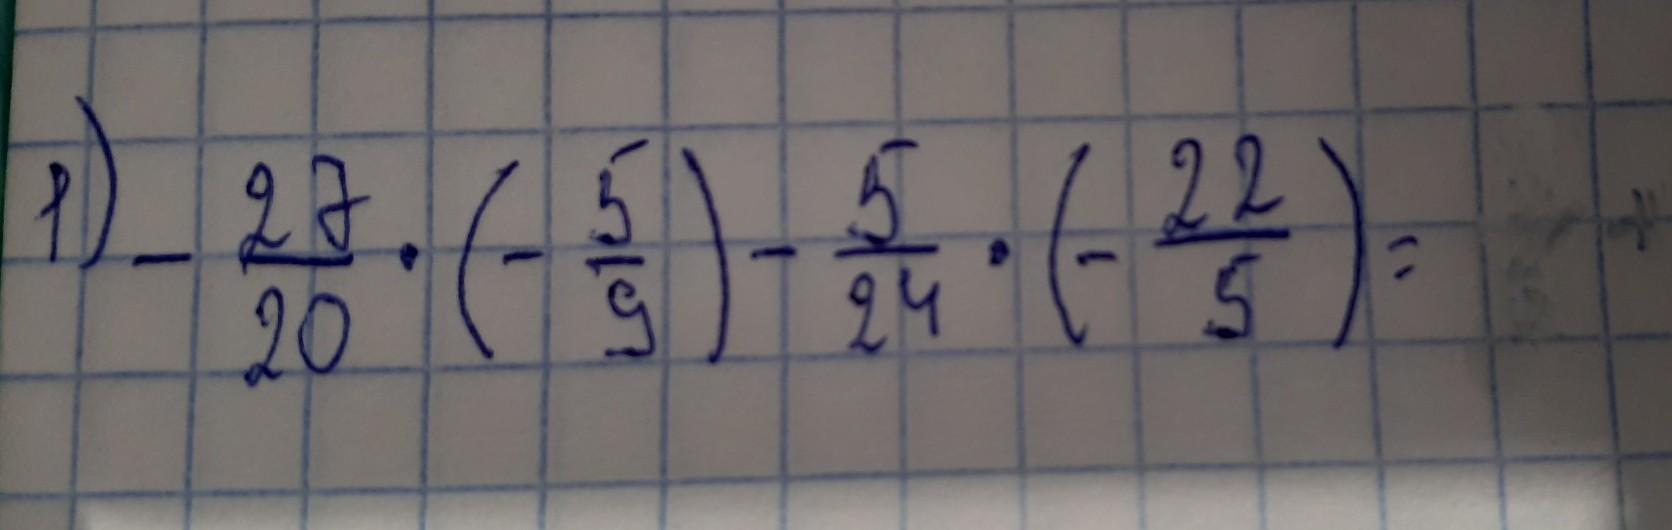 1) - 27/20 · (- 5/9) - 5/24 · (- 22/5) =